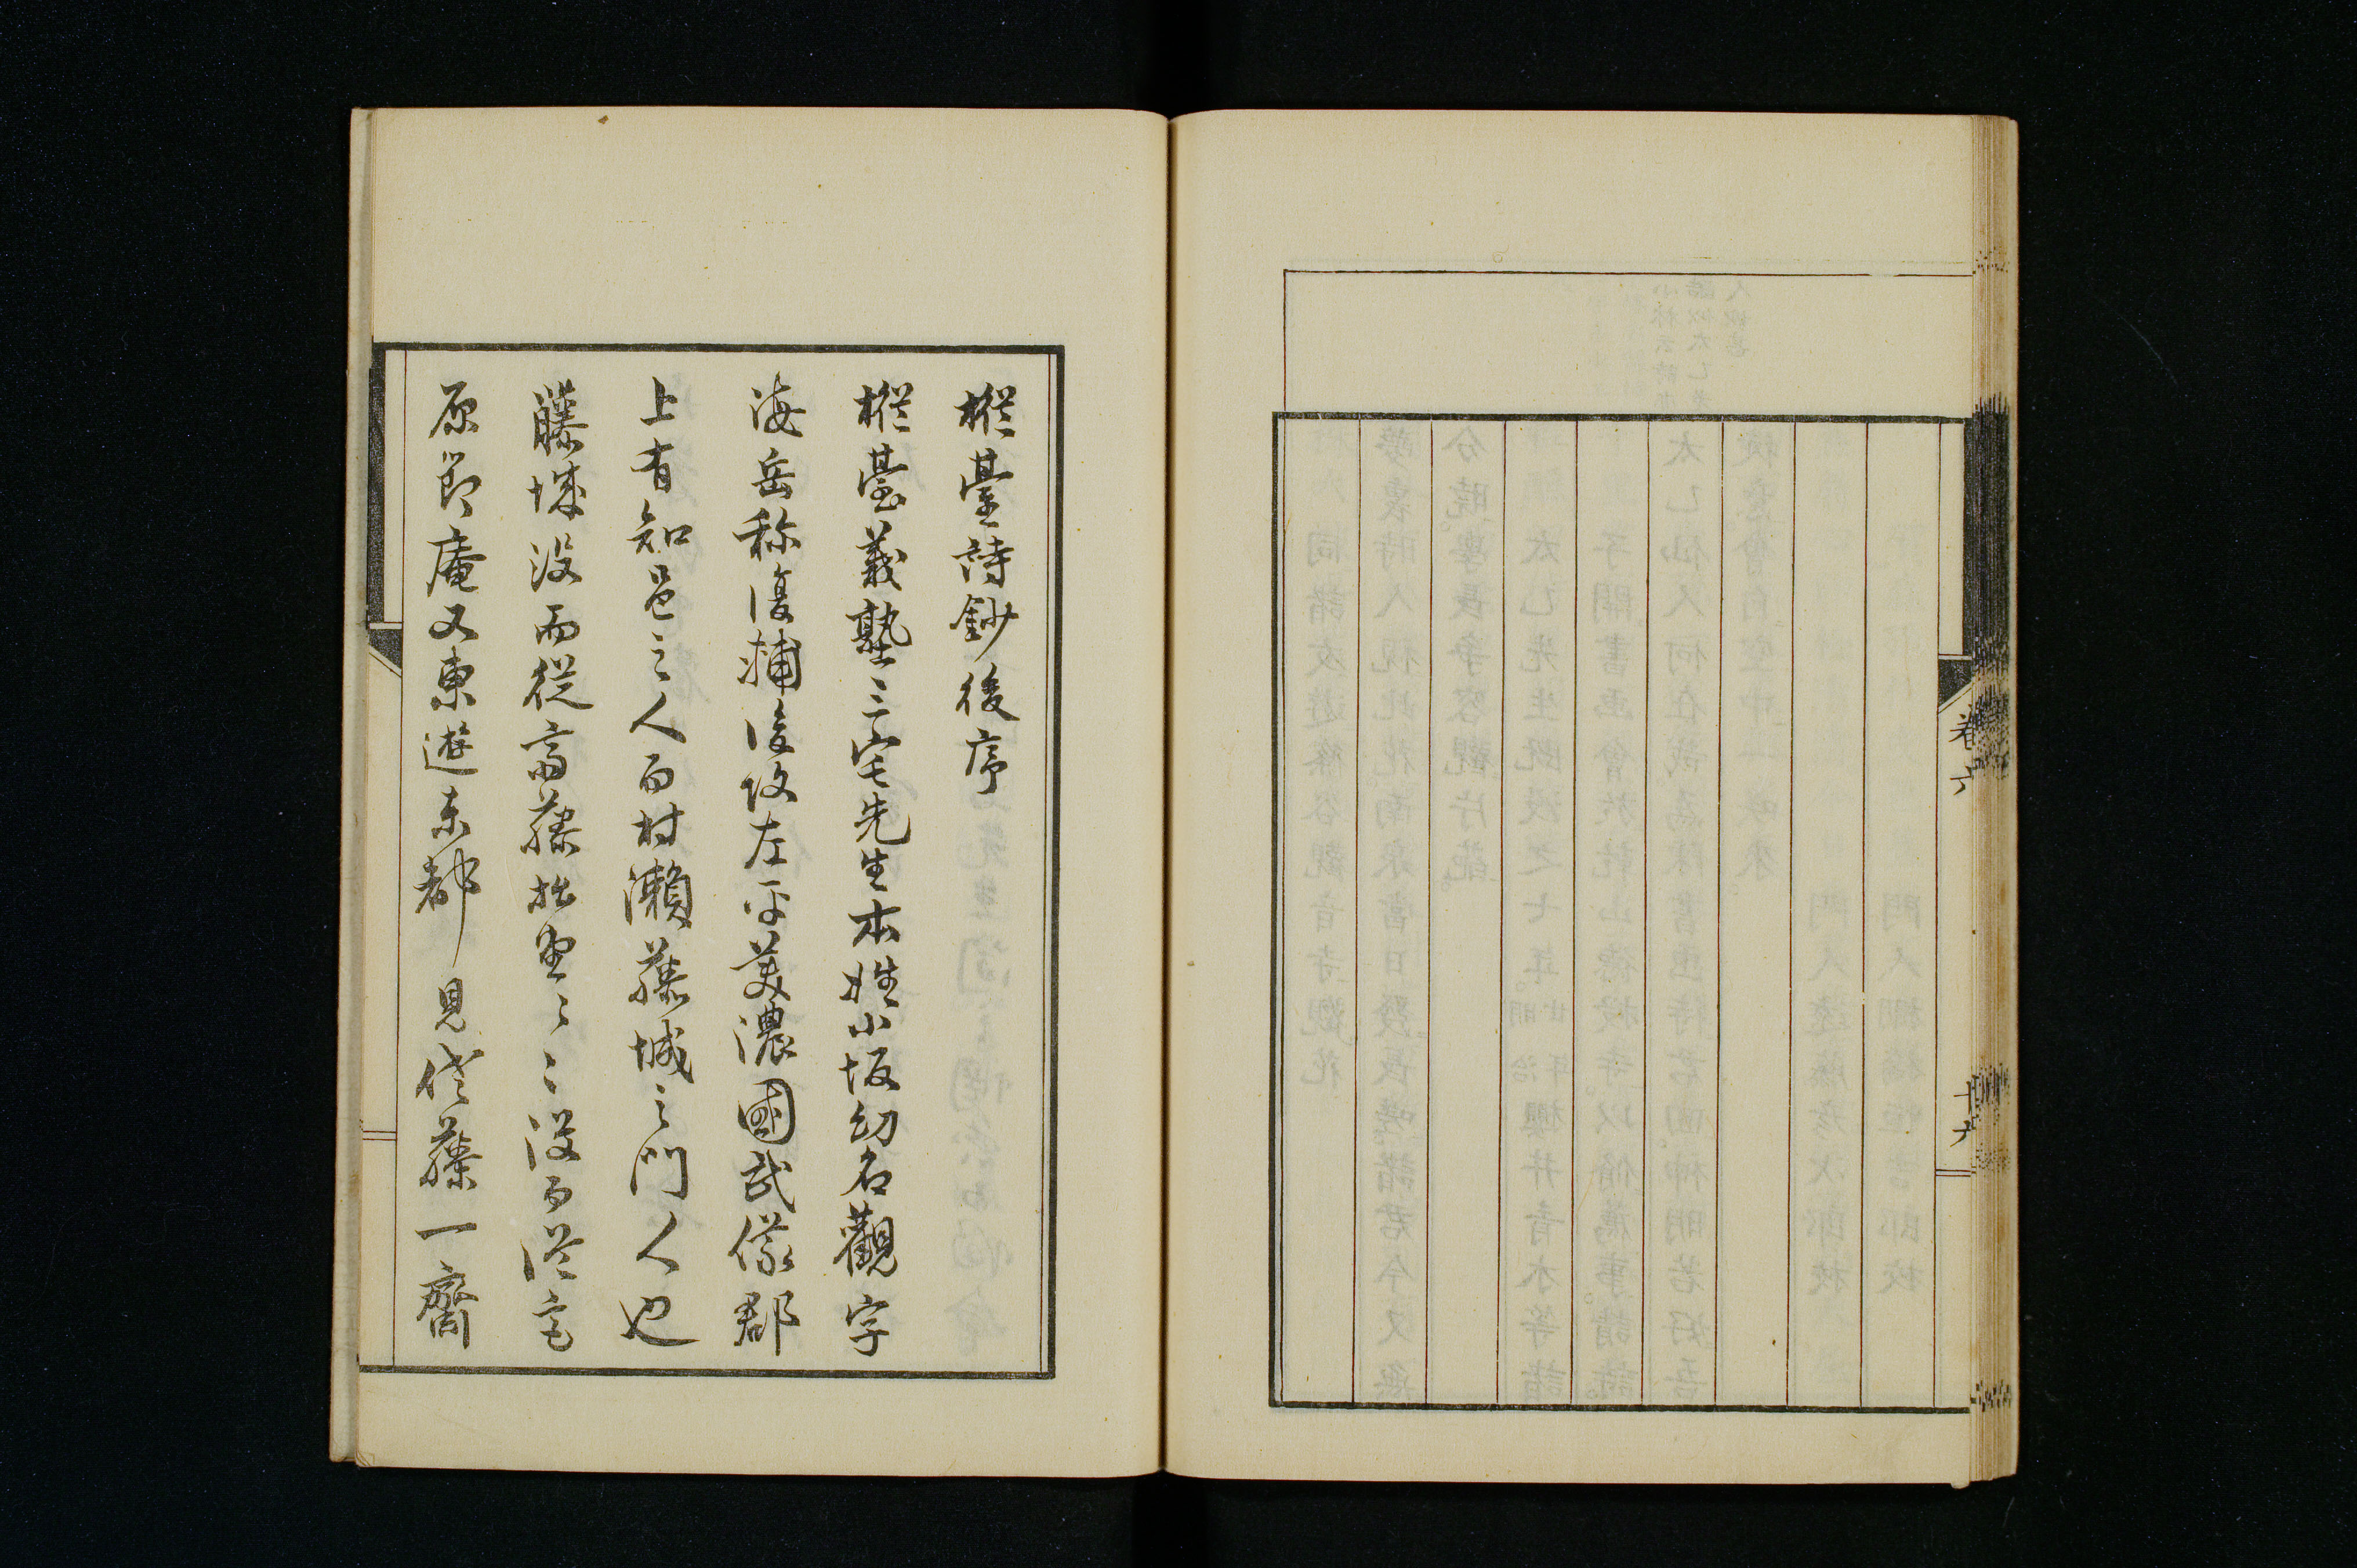 卷六
十六
樅臺詩鈔後序
樅臺義塾三宅先生本姓小坂幼名觀字
海岳称復輔後改左平美濃國武儀郡
上有知邑之人而村瀨藤城之門人也
藤城没而從斎藤拙堂〻〻没而從
原節庵又東遊東都見佐藤一齋